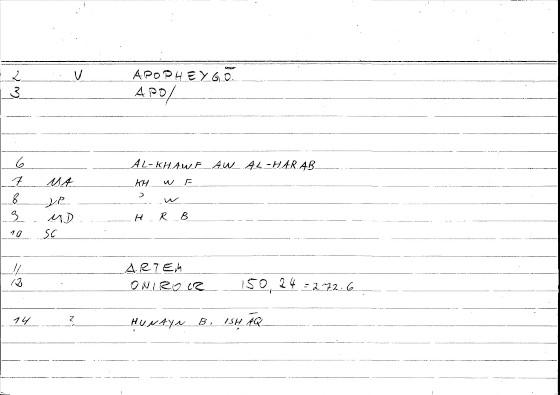 2 V APOPHEYGŌ
3 APO/
6 AL-KHAWF AW AL-HARAB
7 MA KH W F
8 JP ʾ W
9 MD H R B
10 SC
11 ARTEM
12 ONIROCR 150,24 = 272.6
14 ? ḤUNAYN B. ISḤĀQ